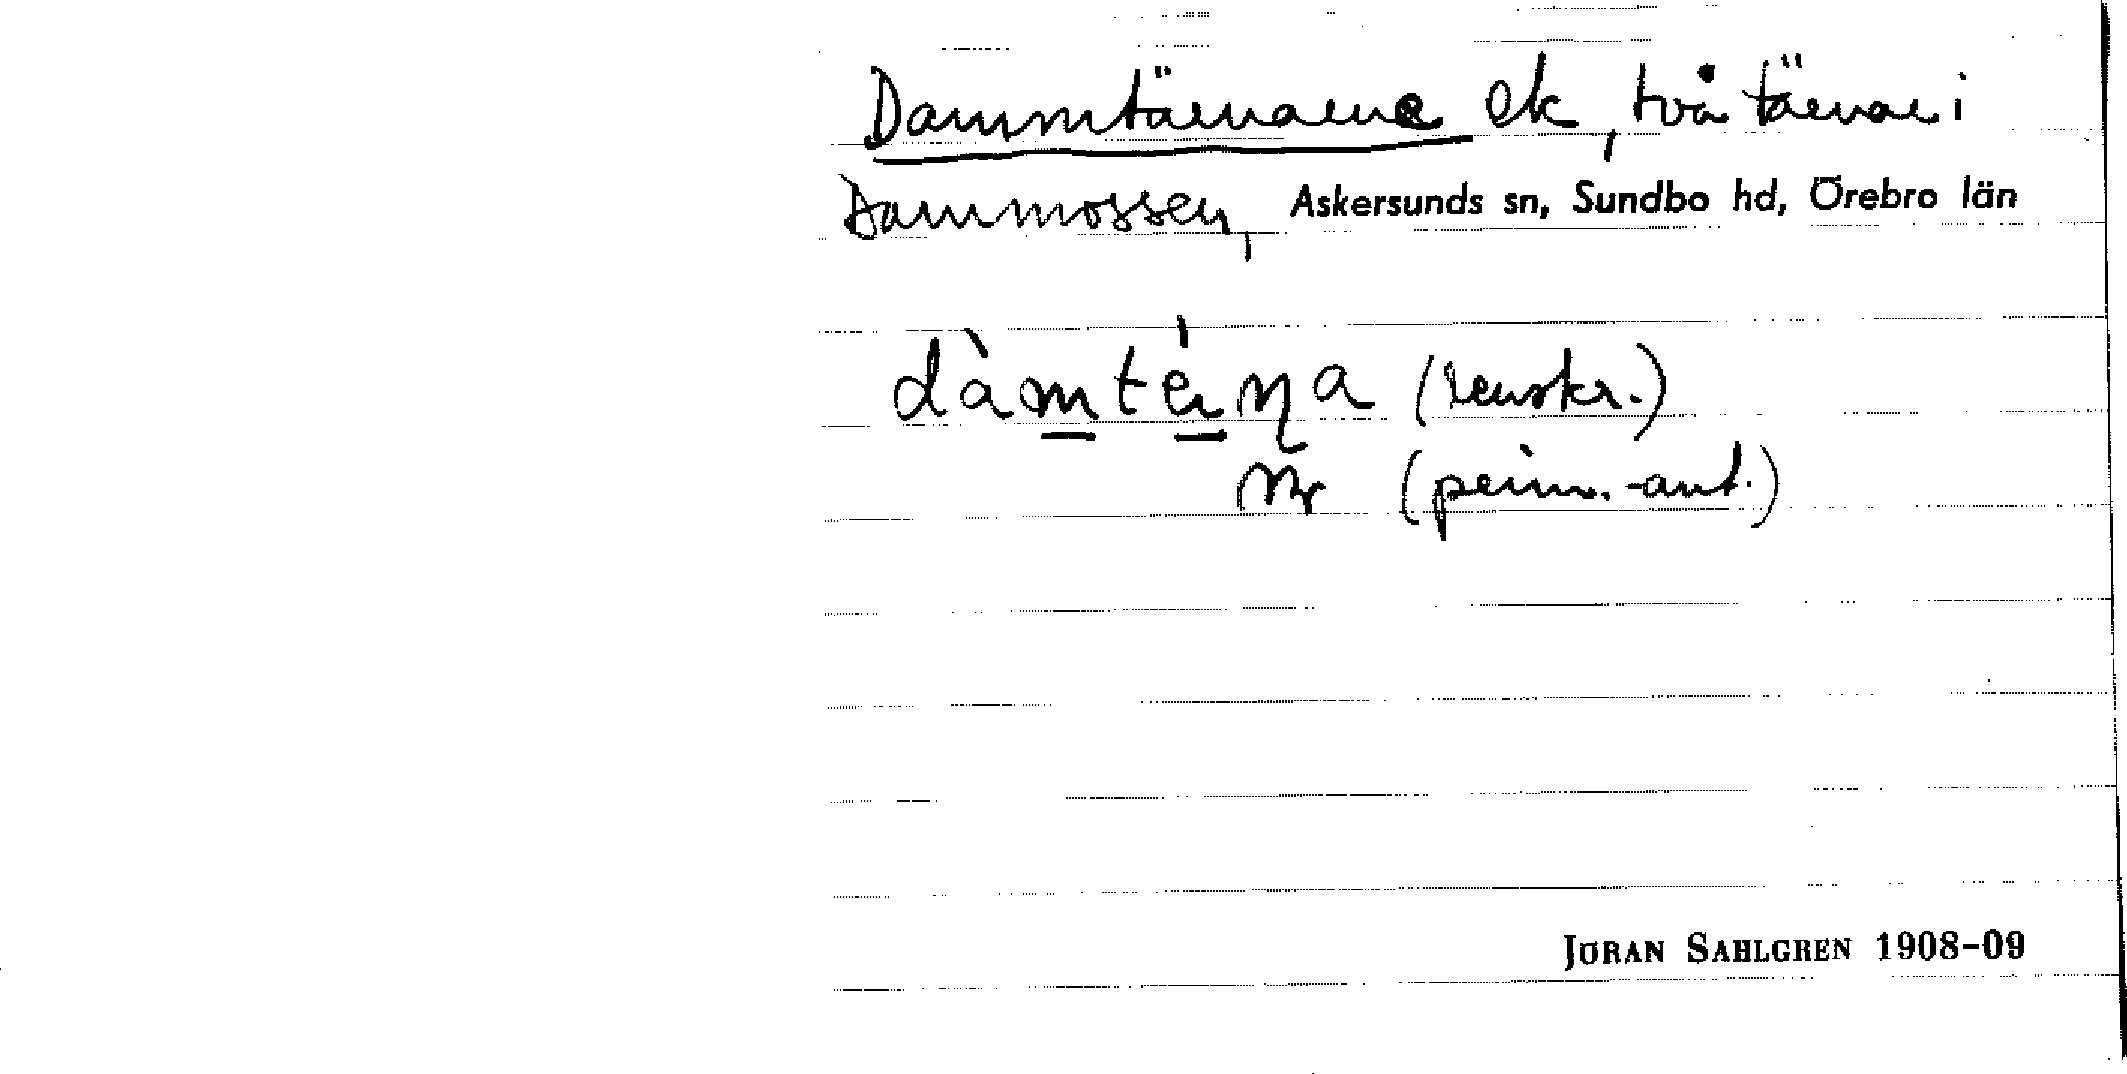 Dammtärnarne ek, två tärnar i
Dammossen, Askersunds sn, Sundbo hd, Örebro län
dàmtèṇa (renskr.)
(prim.-ant.)
JÖRAN SAHLGREN 1908-09